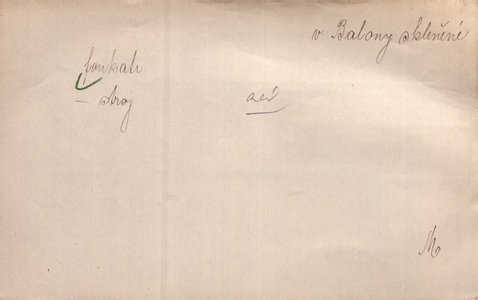 v Balony skleněné
foukati
– stroj
M